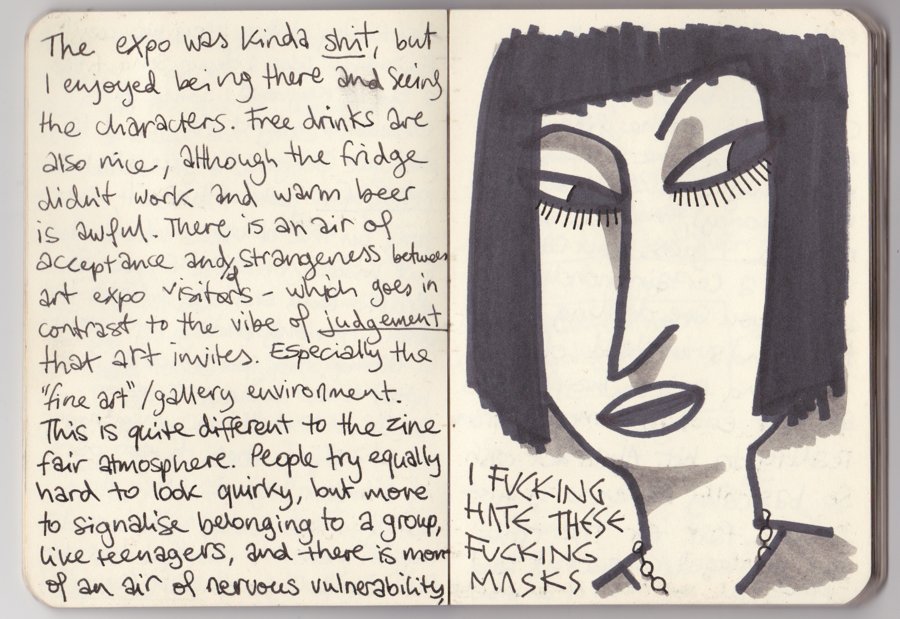 The expo was kinda shit, but
I enjoyed being there and seeing
the characters. Free drinks are
also nice, although the fridge
didn't work and warm beer
is awful. There is an air of
acceptance and strangeness between
art expo visitors – which goes in
contrast to the vibe of judgement
that art invites. Especially the
"fine art"/gallery environment.
This is quite different to the zine
fair atmosphere. People try equally
hard to look quirky, but more
to signalise belonging to a group,
like teenagers, and there is more
of an air of nervous vulnerability,
I FUCKING
HATE THESE
FUCKING
MASKS